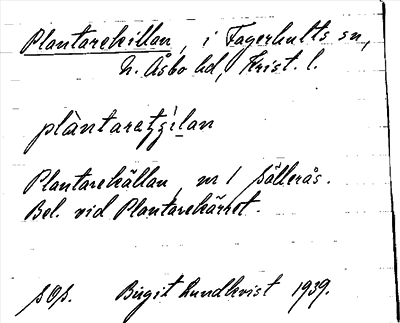 Plantarekillan, i Fagerhults sn,
N. Åsbo hd, Krist. l.
plàntaretʒ́ilan
Plantarekällan, nr 1 Sälleråş.
Bel. vid Plantarekärret.
sOs. Birgit Lundkvist 1939.